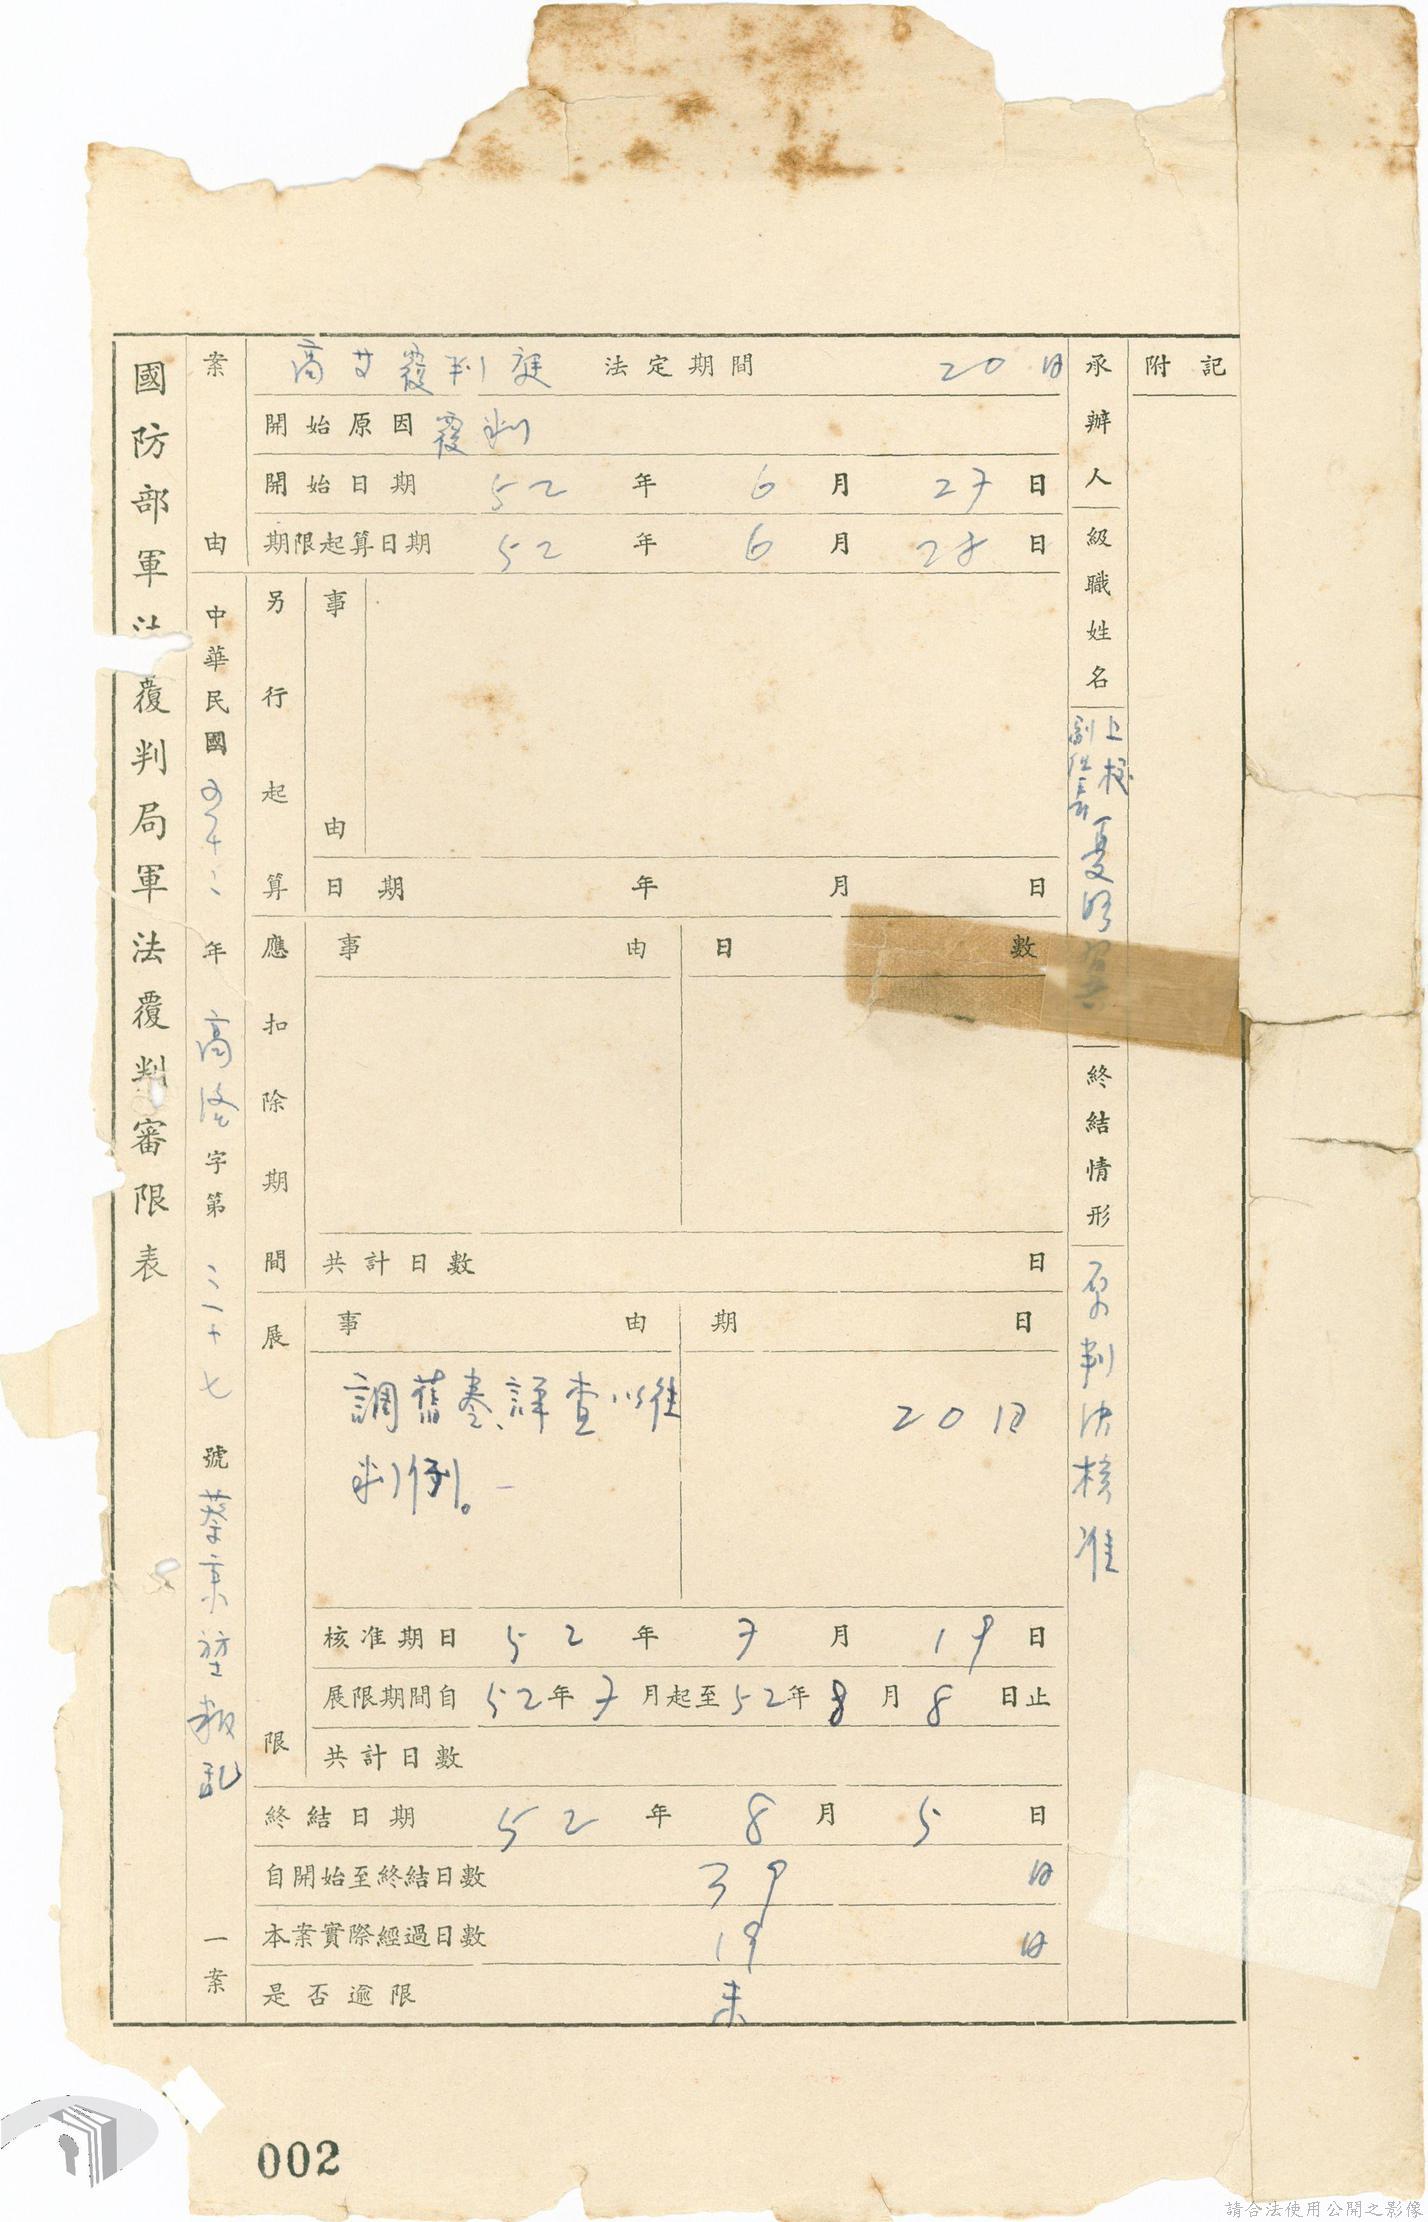 國防部軍法覆判局軍法覆判審限表
案由
中華民國 年 高 字第 三一十七 號蔡 叛乱 一案
高 覆判庭 法定期間 20日
開始原因 覆判
開始日期 52年6月27日
期限起算日期 52年6月28日
另行起算
事由
日期 年 月 日
應扣除期間
事由 日數
共計日數 日
展限
事由 期日
調舊卷詳查以往 20日
判例。
核准期日 52年7月19日
展限期間自52年7月起至52年8月8日止
共計日數
終結日期 52年8月5日
自開始至終結日數 39日
本案實際經過日數 19日
是否逾限 未
承辦人級職姓名 上校 夏
終結情形 原判決核准
附記
002
請合法使用公開之影像